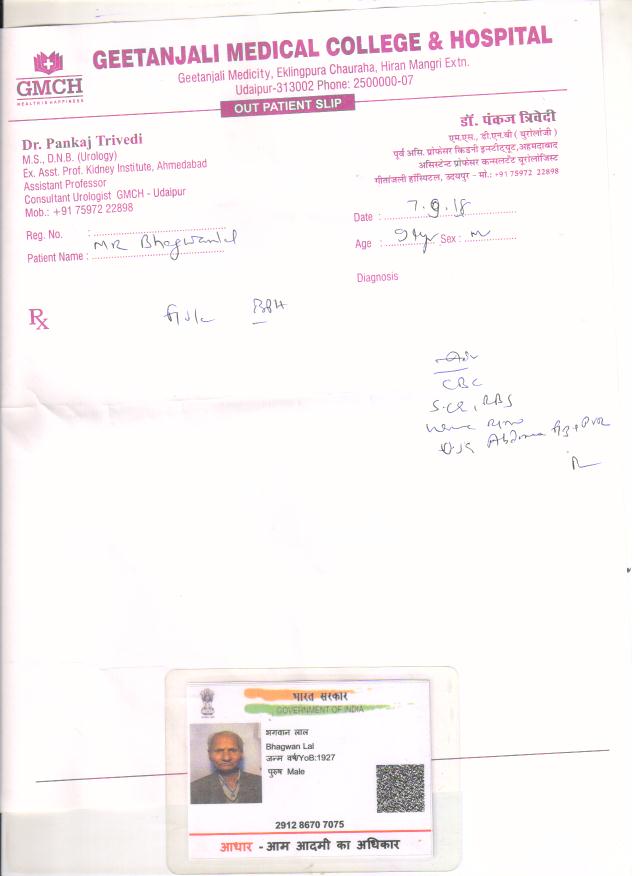 GEETANJALI MEDICAL COLLEGE & HOSPITAL
GMCH
HEALTH IS HAPPINESS
Geetanjali Medicity, Eklingpura Chauraha, Hiran Mangri Extn.
Udaipur-313002 Phone: 2500000-07
OUT PATIENT SLIP
Dr. Pankaj Trivedi
M.S., D.N.B. (Urology)
Ex. Asst. Prof. Kidney Institute, Ahmedabad
Assistant Professor
Consultant Urologist GMCH - Udaipur
Mob.: +91 75972 22898
डॉ. पंकज त्रिवेदी
एम.एस., डी.एन.बी ( यूरोलॉजी )
पूर्व असि. प्रोफेसर किडनी इन्स्टीट्यूट, अहमदाबाद
असिस्टेन्ट प्रोफेसर कन्सलटेंट यूरोलॉजिस्ट
गीतांजली हॉस्पिटल, उदयपुर - मो.: +91 75972 22898
Reg. No. :
Patient Name : MR Bhagwanlal
Date : 7.9.18
Age : 91yr Sex : M
Diagnosis
Rx
BPH
Adv
CBC
S.CR, RBS
Abdomen + PVR
भारत सरकार
GOVERNMENT OF INDIA
भगवान लाल
Bhagwan Lal
जन्म वर्ष/YoB:1927
पुरुष Male
2912 8670 7075
आधार - आम आदमी का अधिकार